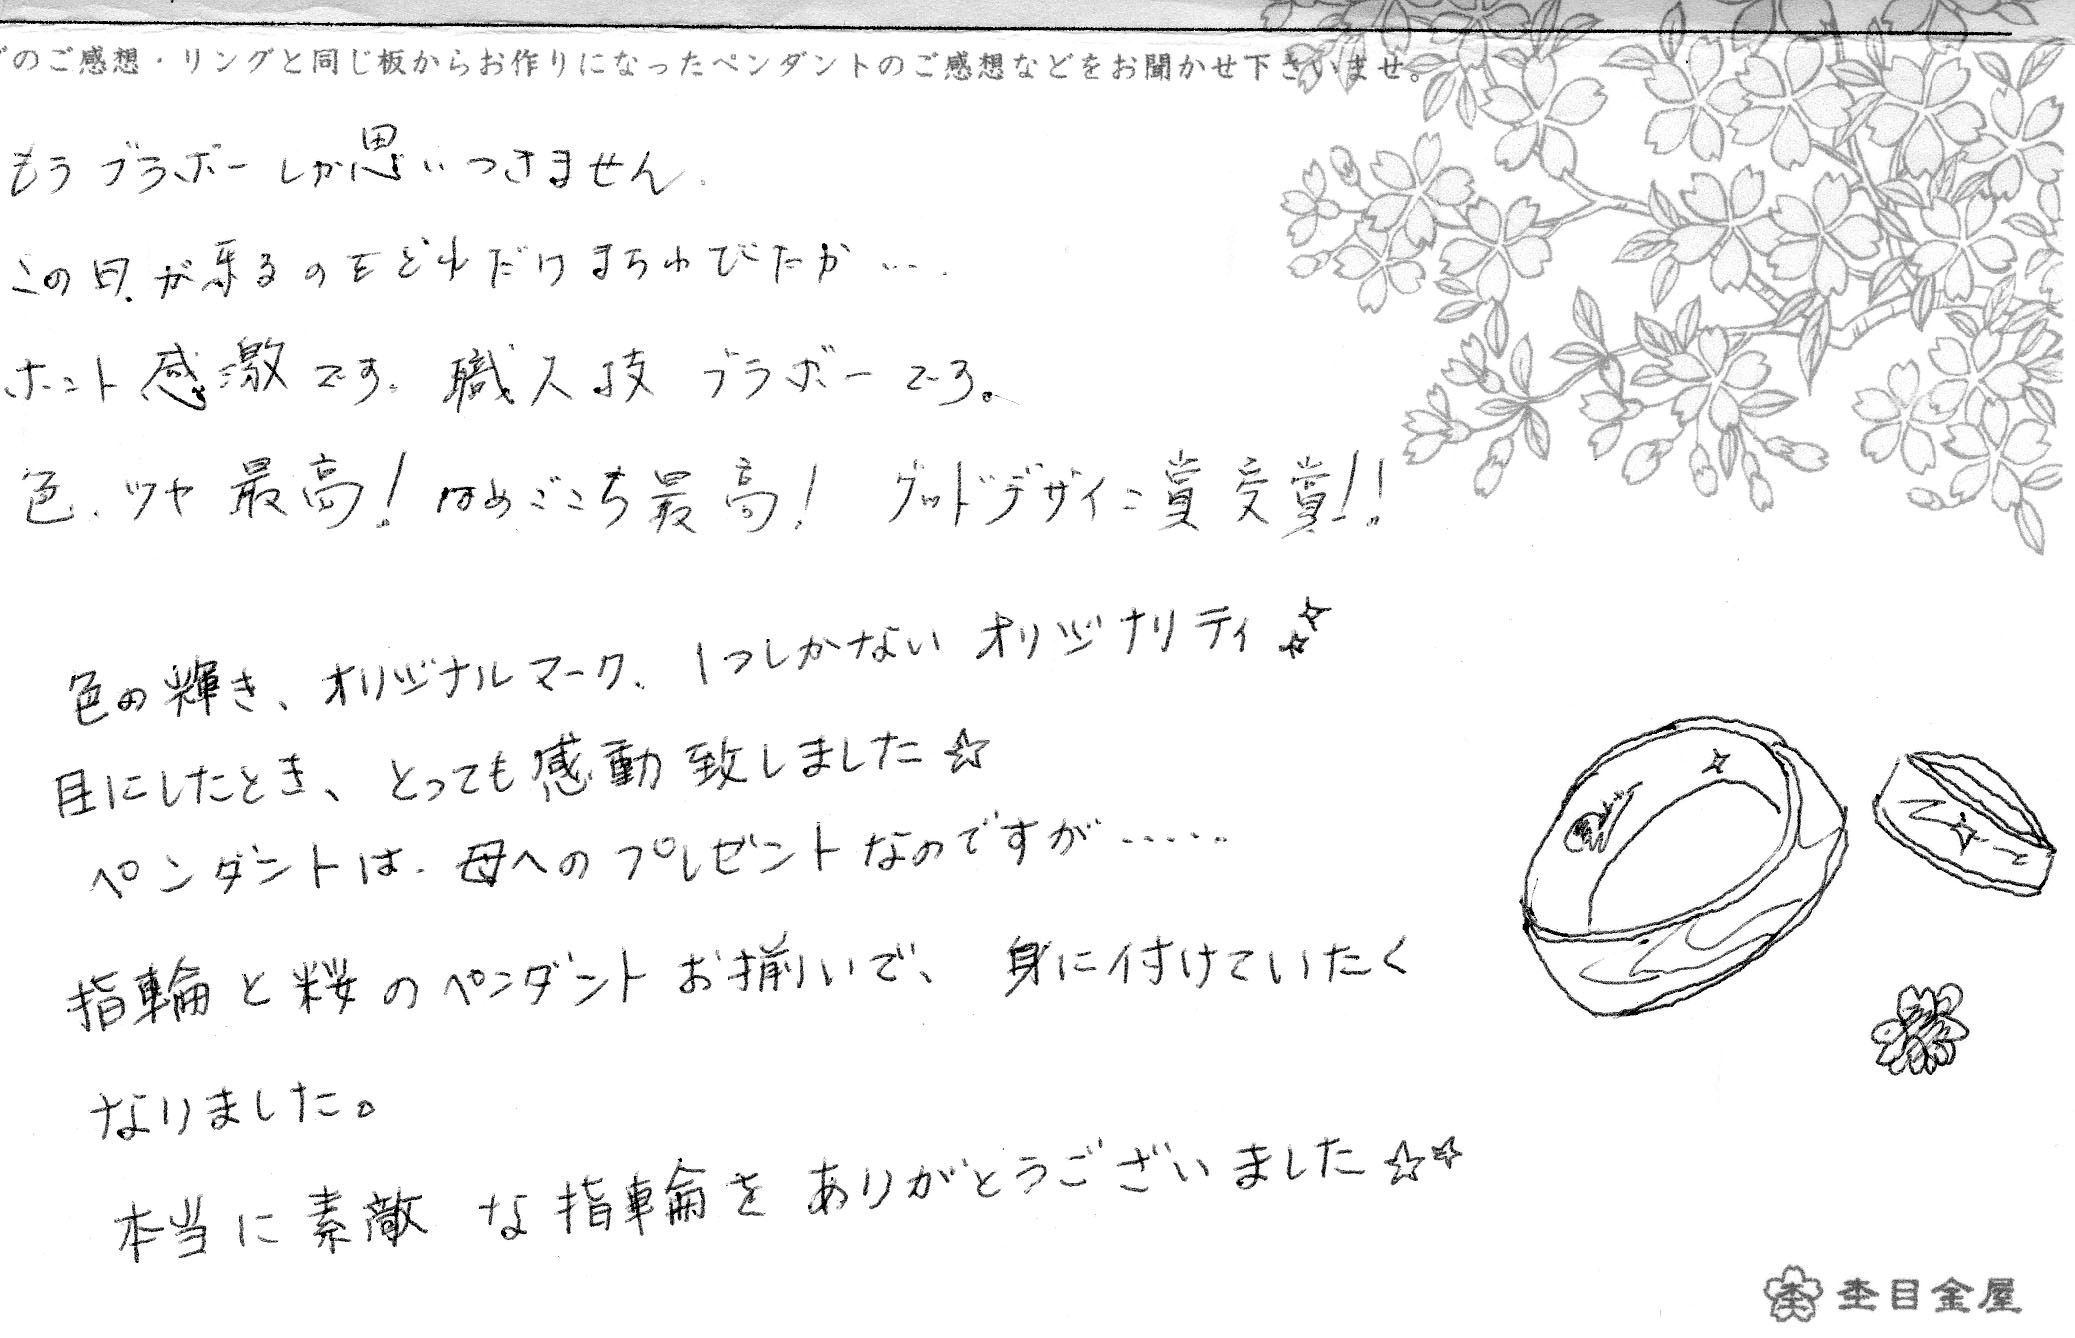 のご感想・リングと同じ板からお作りになったペンダントのご感想などをお聞かせ下さいませ。
もうブラボーしか思いつきません.
この日が来るのをどれだけまちわびたか….
ホント感激です。職人技ブラボーです。
色、ツヤ最高!はめごこち最高!グッドデザイン賞受賞!!
色の輝き、オリジナルマーク、1つしかないオリジナリティ☆☆
目にしたとき、とっても感動致しました☆
ペンダントは、母へのプレゼントなのですが……
指輪と桜のペンダントお揃いで、身に付けていたく
なりました。
本当に素敵な指輪をありがとうございました☆☆
杢目金屋